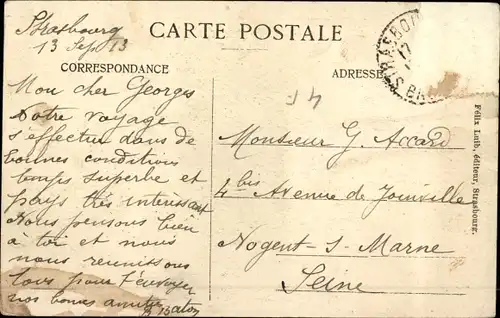 Strasbourg
13 Sept 13
CARTE POSTALE
CORRESPONDANCE
ADRESSE
Mon cher Georges
Notre voyage
s'effectue dans de
bonnes conditions
temps superbe et
pays très intéressant
Nous pensons bien
à toi et nous
nous réunissons
tous pour t'envoyer
nos bonnes amitiés
4 F
Monsieur G. Accard
4 bis Avenue de Joinville
Nogent-s-Marne
Seine
Félix Luib, éditeur, Strasbourg.